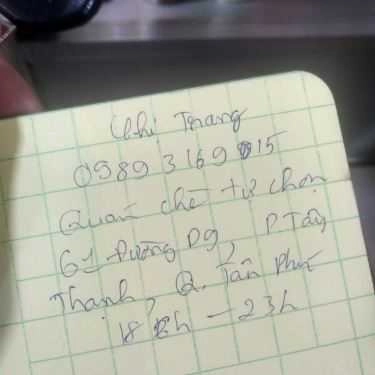 Chị Trang
0989 3169 15
Quán chè tự chọn
61 Đường D9, P. Tây
Thạnh, Q. Tân Phú
18h – 23h